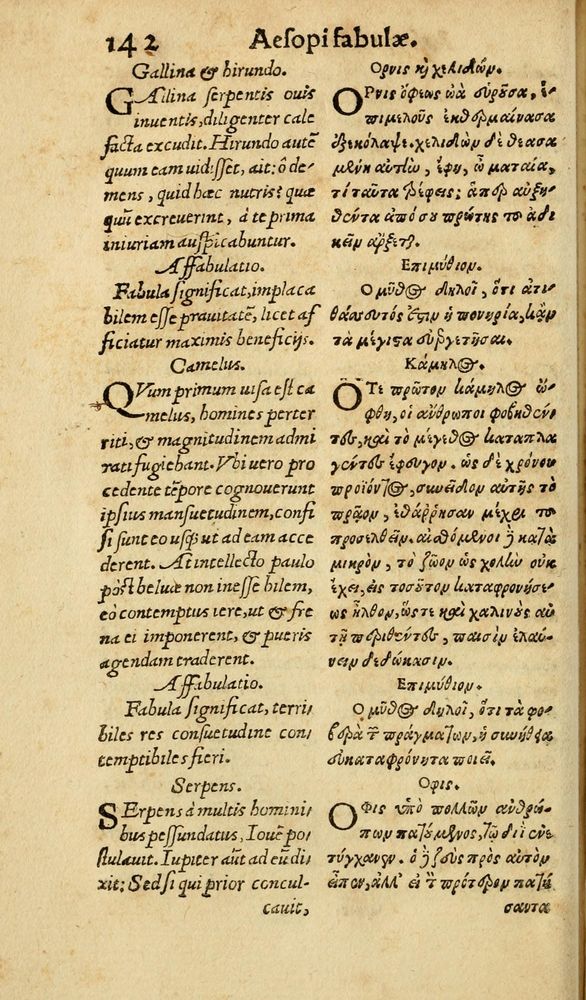 142 Aesopi fabulæ.
Gallina & hirundo.
GAllina serpentis ouis
inuentis, diligenter cale
facta excudit. Hirundo autẽ
quum eam uidisset, ait: ô de-
mens, quid hæc nutris? quæ
quũ excreuerint, à te prima
iniuriam auspicabuntur.
Affabulatio.
Fabula significat, implaca
bilem esse prauitatẽ, licet af
ficiatur maximis beneficijs.
Camelus.
QVum primum uisa est ca
melus, homines perter
riti, & magnitudinem admi
rati fugiebant. Vbi uero pro
cedente tẽpore cognouerunt
ipsius mansuetudinem, confi
si sunt eo usq; ut ad eam acce
derent. At intellecto paulo
pòst beluæ non inesse bilem,
eò contemptus iere, ut & fre
na ei imponerent, & pueris
agendam traderent.
Affabulatio.
Fabula significat, terri
biles res consuetudine con
temptibiles fieri.
Serpens.
SErpens à multis homini
bus pessundatus, Iouẽ po
stulauit. Iupiter aũt ad eũ di
xit: Sed si qui prior concul-
cauit,
Ορνις κ̀ χελιδών.
ΟΡνις ὄφεως ὠὰ εὑροῦσα, ἐ-
πιμελοῦς ἐκθερμαίνασα
ἐξεκόλαψε. χελιδὼν δὲ θεασα
μένη αὐτὴν, ἔφη, ὦ ματαία,
τί ταῦτα τρέφεις; ἅπερ αὐξη-
θέντα ἀπό σου πρώτης τοῦ ἀδι
κεῖν ἄρξεται.
Επιμύθιον.
Ο μῦθος δηλοῖ, ὅτι ἀτι
θάσσευτός ἐστιν ἡ πονηρία, κἂν
τὰ μέγιστα εὐεργετῆται.
Κάμηλος.
ΟΤε πρῶτον κάμηλος ὤ-
φθη, οἱ ἄνθρωποι φοβηθέν-
τες, καὶ τὸ μέγεθος καταπλα
γέντες ἔφευγον. ὡς δὲ χρόνου
προϊόντος, συνεῖδον αὐτῆς τὸ
πρᾷον, ἐθάρρησαν μέχρι τοῦ
προσελθεῖν. αἰσθόμενοι δὲ κατὰ
μικρὸν, τὸ ζῶον ὡς χολὴν οὐκ
ἔχει, εἰς τοσοῦτον καταφρονήσε-
ως ἦλθον, ὥστε καὶ χαλινοὺς αὐ
τῇ περιθέντες, παισὶν ἐλαύ-
νειν δεδώκασιν.
Επιμύθιον.
Ο μῦθος δηλοῖ, ὅτι τὰ φο-
βερὰ τῶν πραγμάτων, ἡ συνήθεια
εὐκαταφρόνητα ποιεῖ.
Οφις.
ΟΦις ὑπὸ πολλῶν ἀνθρώ-
πων πατούμενος, τῷ διῒ ἐνε
τύγχανεν. ὁ δὲ ζεὺς πρὸς αὐτὸν
εἶπεν, ἀλλ' εἰ τὸν πρότερον πατή
σαντα